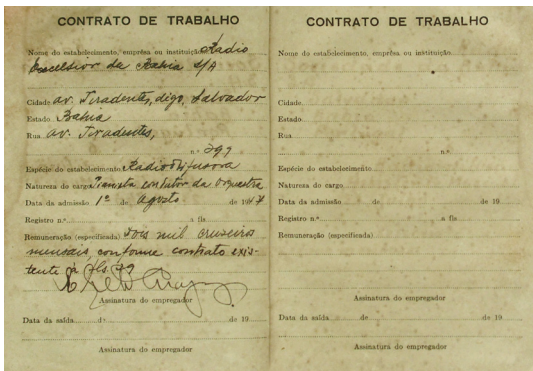 CONTRATO DE TRABALHO
Nome do estabelecimento, emprêsa ou instituição Radio
Excelsior da Bahia S/A
Cidade av. Tiradentes, digo, Salvador
Estado Bahia
Rua av. Tiradentes,
n.º 299
Espécie do estabelecimento Radio Difusora
Natureza do cargo Pianista condutor da orquestra
Data da admissão 1º de agosto de 1947
Registro n.º a fls
Remuneração (especificada) Dois mil cruseiros
mensais, conforme contrato exis-
tente à fls. 29
Assinatura do empregador
Data da saída de de 19
Assinatura do empregador
CONTRATO DE TRABALHO
Nome do estabelecimento, emprêsa ou instituição
Cidade
Estado
Rua
n.º
Espécie do estabelecimento
Natureza do cargo
Data da admissão de de 19
Registro n.º a fls
Remuneração (especificada)
Assinatura do empregador
Data da saída de de 19
Assinatura do empregador